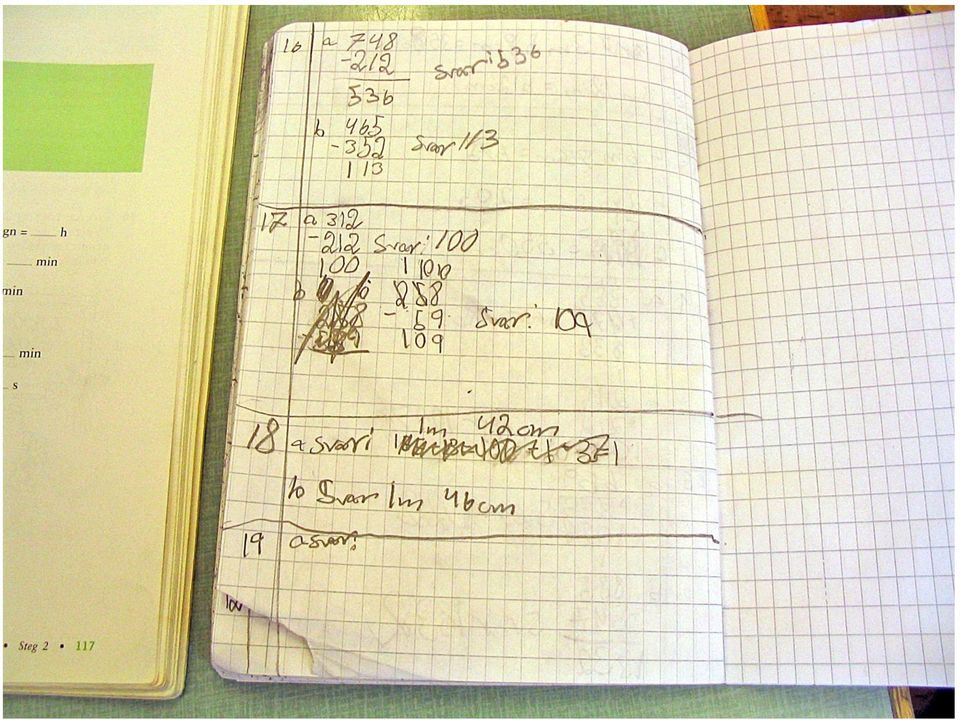 gn = ___ h
___ min
min
___ min
_ s
• Steg 2 • 117
16 a 748
-212 Svar: 536
536
b 465
-352 Svar 113
113
17 a 312
-212 Svar: 100
100 1 10 10
b 258
- 59 Svar: 109
109
1m 42cm
18 a svar:
b Svar 1m 46cm
19 a svar: